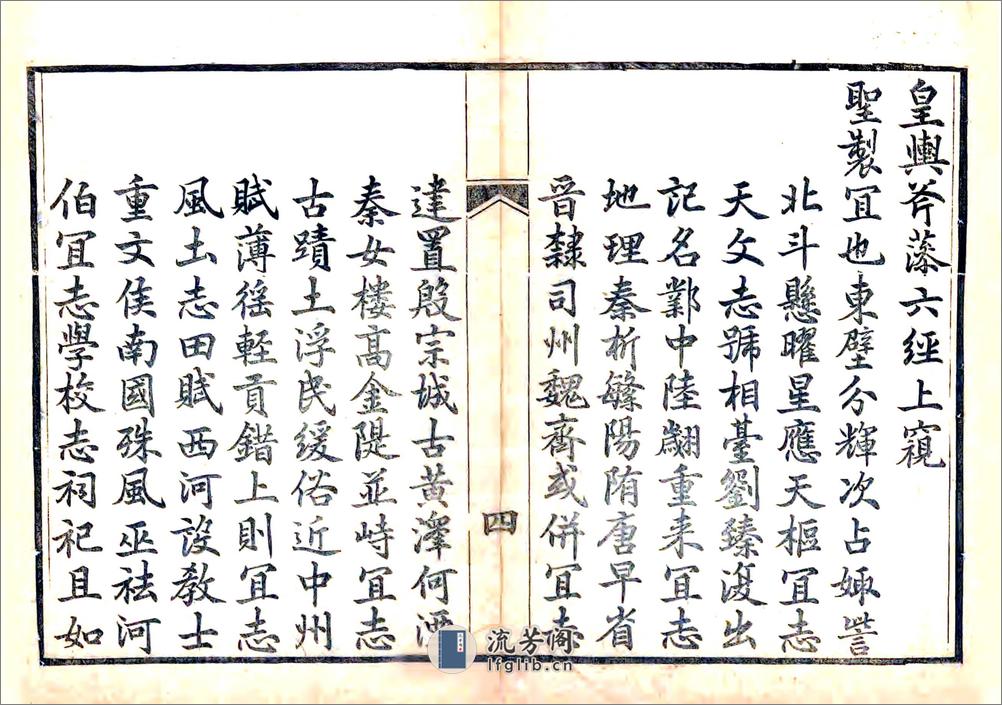 皇輿斧藻六經上窺
聖製宜也東壁分輝次占娵訾
北斗懸曜星應天樞冝志
天文志號相臺劉臻復出
記名鄴中陸翽重来冝志
地理秦析繁陽隋唐早省
晉隸司州魏齊或併冝志
四
建置殷宗城古黄澤何湮
秦女樓髙金隄並峙冝志
古蹟土浮民緩俗近中州
賦薄徭輕貢錯上則冝志
風土志田賦西河設教士
重文侯南國殊風巫祛河
伯冝志學校志祠祀且如
流芳阁
lfglib.cn